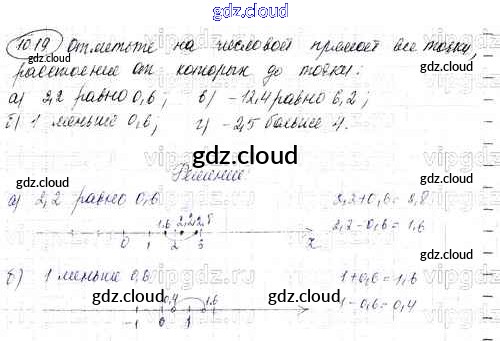 gdz.cloud
10.19 Отметьте на числовой прямой все точки,
расстояние от которых до точки:
а) 2,2 равно 0,6; в) -12,4 равно 6,2;
б) 1 меньше 0,6; г) -2,5 больше 4.
gdz.cloud
Решение:
а) 2,2 равно 0,6 2,2+0,6=2,8
1,6 2,2 2,8 2,2-0,6=1,6
0 1 2 3 x
б) 1 меньше 0,6 1+0,6=1,6
0,4 1,6 1-0,6=0,4
-1 0 1
gdz.cloud